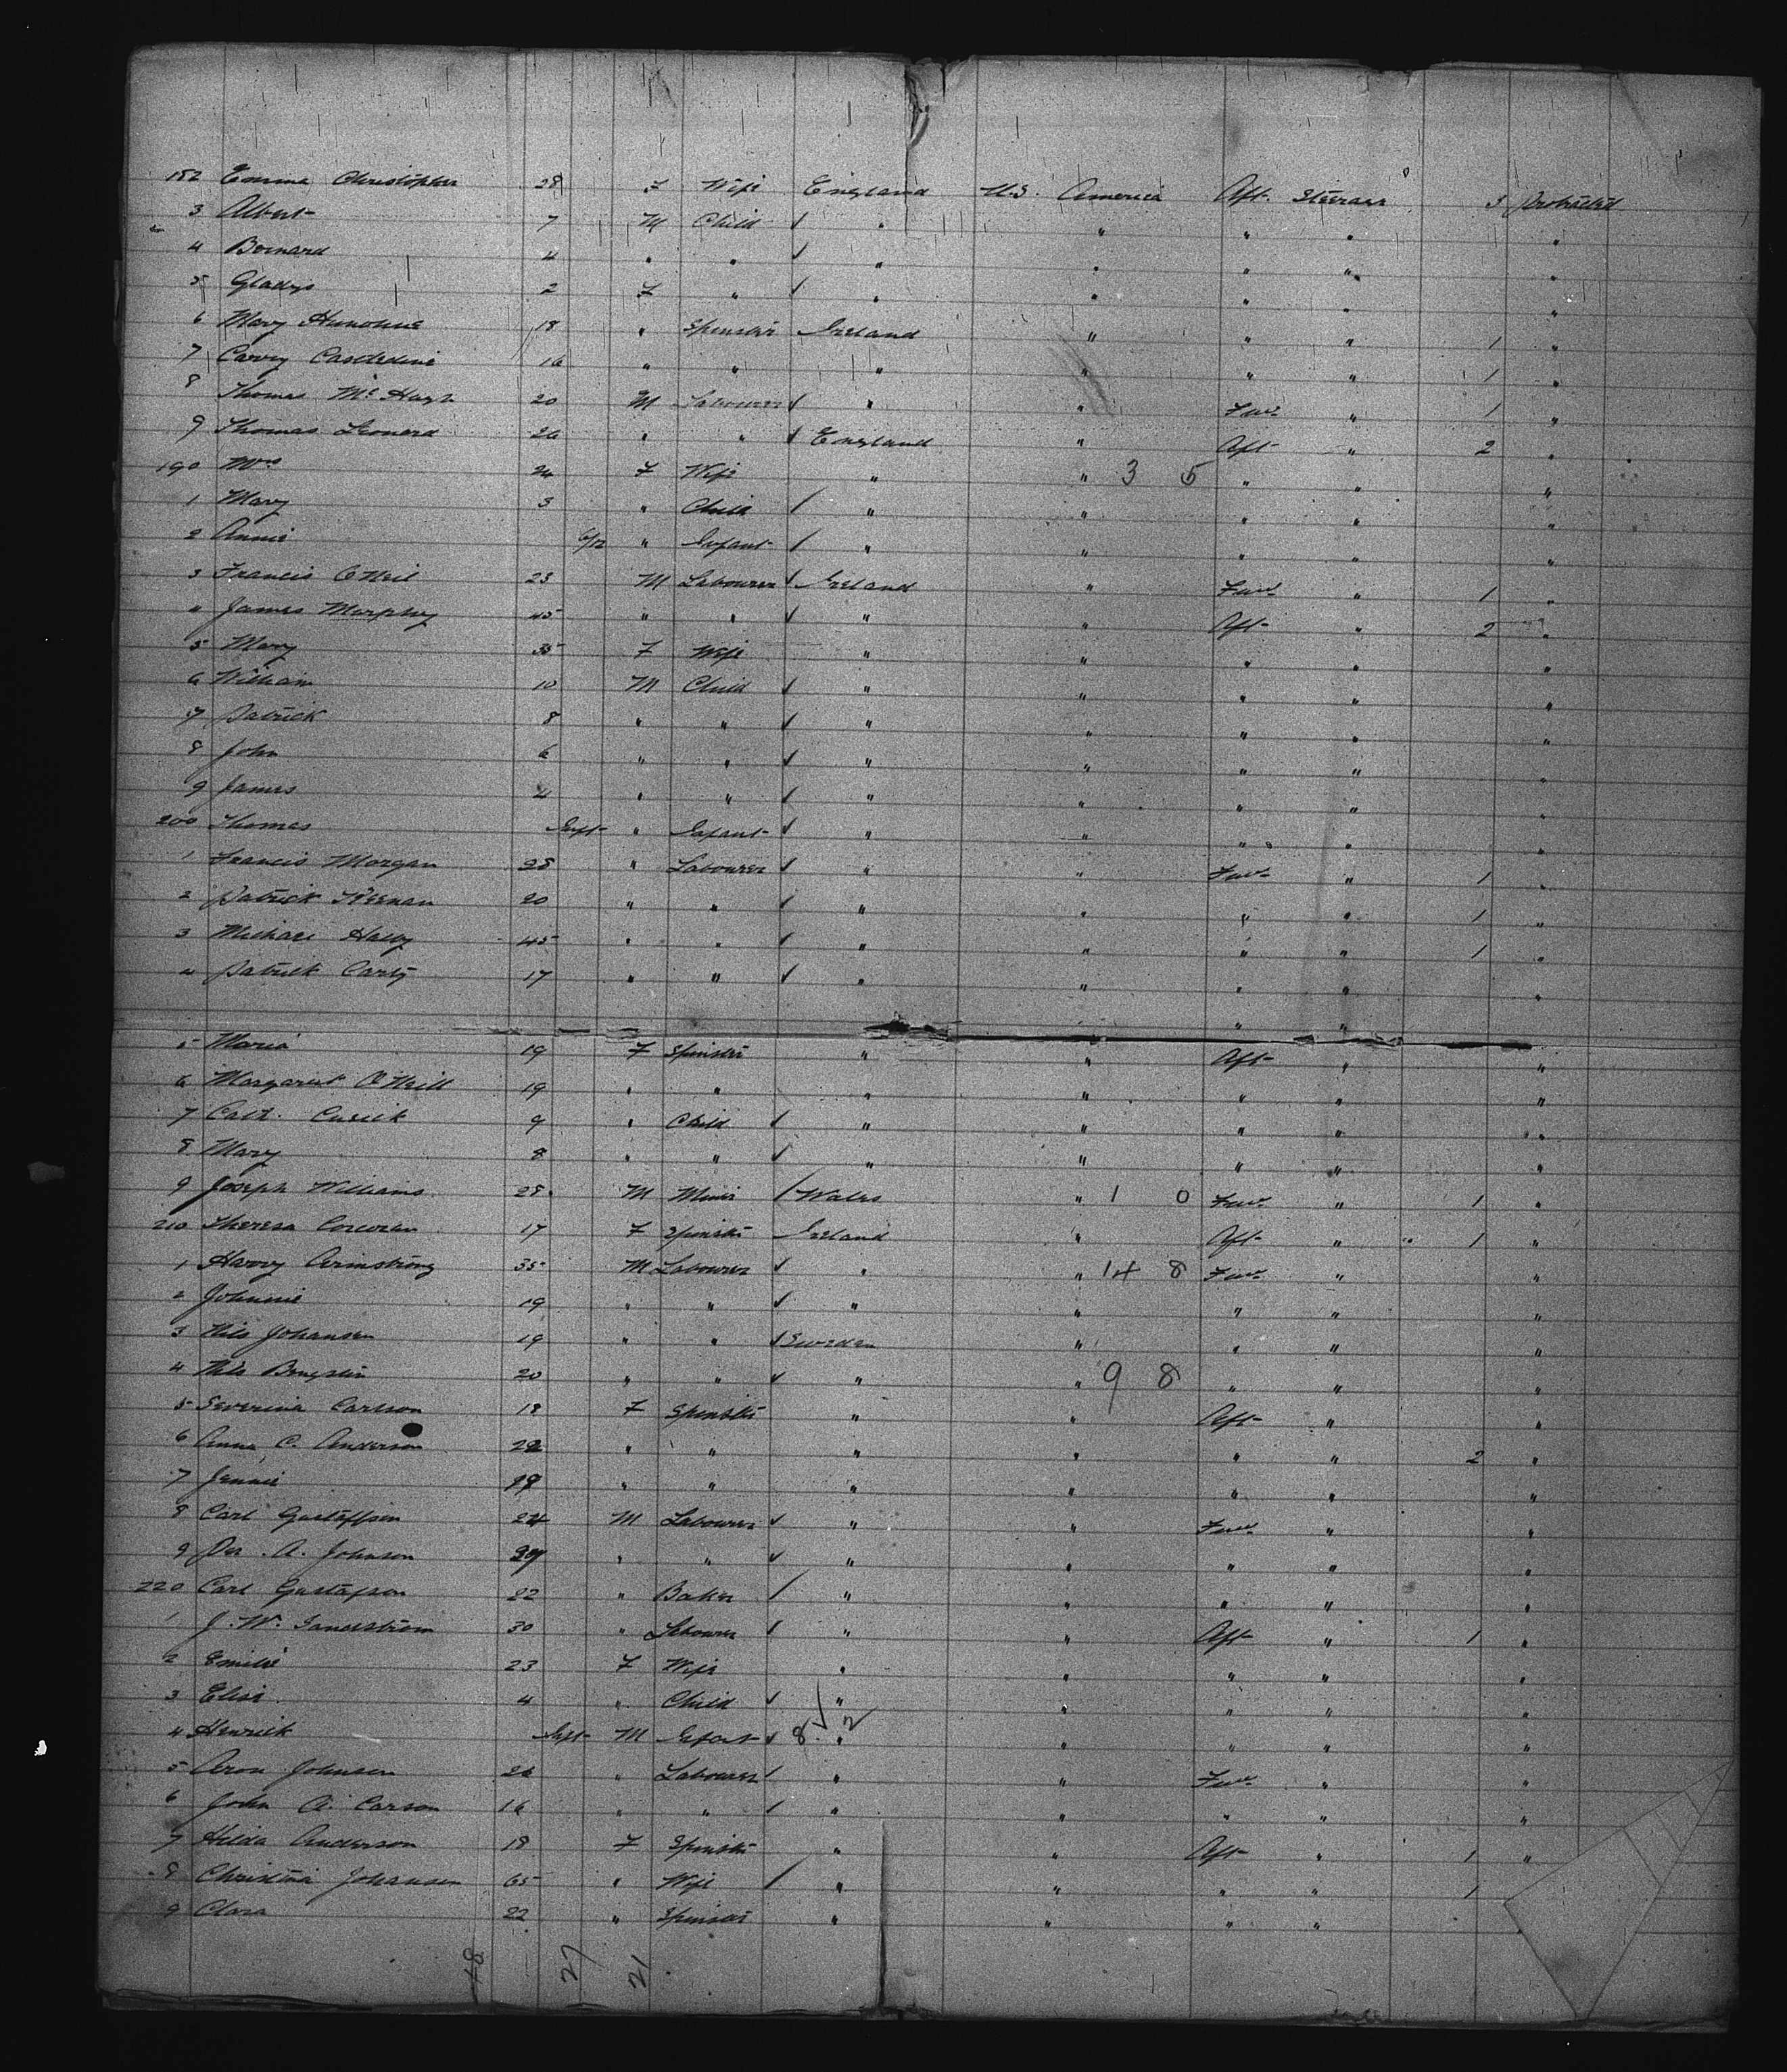 182 Emma Christopher 28 F Wife England U.S. America Aft. Steerage 3 Protracted
3 Albert 7 M Child ✓ " " " " "
4 Bernard 4 " " ✓ " " " " "
5 Gladys 2 F " ✓ " " " " "
6 Mary 18 " Spinster Ireland " " " 1 "
7 Carry 16 " " " " " " 1 "
8 Thomas McHugh 20 M Labourer ✓ " " Fwd " 1 "
9 Thomas Leonard 26 " " ✓ England " Aft " 2 "
190 Mrs 24 F Wife " " 3 5 " " "
1 Mary 3 " Child / " " " " "
2 Annie 6/12 " Infant / " " " " "
3 Francis O'Neil 23 M Labourer ✓ Ireland " Fwd " 1 "
" James Murphy 45 " " ✓ " " Aft " 2 "
5 Mary 35 F Wife " " " " "
6 William 10 M Child ✓ " " " " "
7 Patrick 8 " " ✓ " " " " "
8 John 6 " " ✓ " " " " "
9 James 4 " " ✓ " " " " "
200 Thomas Inft " Infant ✓ " " " " "
1 Francis Morgan 28 " Labourer ✓ " " Fwd " 1 "
2 Patrick Keenan 20 " " ✓ " " " " 1 "
3 Michael 45 " " ✓ " " " " 1 "
4 Patrick Carty 17 " " ✓ " " " " "
5 Maria 19 F Spinster " " Aft " "
6 Margaret O'Neill 19 " " " " " " "
7 Cath. Cusick 9 " Child ✓ " " " " "
8 Mary 8 " " ✓ " " " " "
9 Joseph Williams 28 M Miner / Wales " 1 0 Fwd " 1 "
210 Theresa Corcoran 17 F Spinster Ireland " Aft " " 1 "
1 Harry Armstrong 35 M Labourer ✓ " " 14 8 Fwd " "
2 Johnnie 19 " " ✓ " " " " "
3 Nils Johansen 19 " " ✓ Sweden " " " "
4 Nils 20 " " ✓ " " 9 8 " " "
5 Severina Carlson 18 F Spinster " " Aft " "
6 Anna C. Anderson 22 " " " " " " 2 "
7 Jennie 19 " " " " " " "
8 Carl Gustaffson 24 M Labourer ✓ " " Fwd " "
9 Per. A. Johnson " " ✓ " " " " "
220 Carl Gustafson 22 " Baker / " " " " "
1 J. W. Sandstrom 30 " Labourer / " " Aft " 1 "
2 Emilie 23 F Wife " " " " "
3 Elise 4 " Child ✓ " " " " "
4 Henrick Inft M Infant ✓ 8 2 " " " " "
5 Aron Johnson 26 " Labourer / " " Fwd " "
6 John A. Carson 16 " " / " " " " "
7 Hilda Anderson 18 F Spinster " " Aft " 1 "
8 Christina Johansen 65 " Wife / " " " " 1
9 Clara 22 " Spinster " " " "
48 27 21